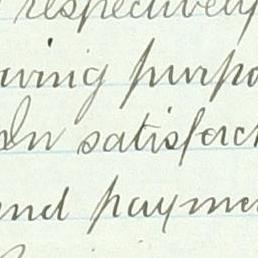 respectively
wing purpo
In satisfact
and payme